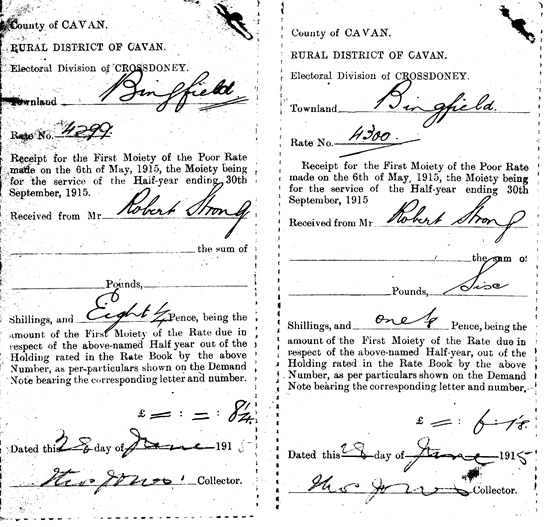 County of CAVAN.
RURAL DISTRICT OF CAVAN.
Electoral Division of CROSSDONEY.
Townland Bingfield
Rate No. 4299
Receipt for the First Moiety of the Poor Rate
made on the 6th of May, 1915, the Moiety being
for the service of the Half-year ending 30th
September, 1915.
Received from Mr Robert Strong
the sum of
Pounds,
Shillings, and Eight ¼ Pence, being the
amount of the First Moiety of the Rate due in
respect of the above-named Half year out of the
Holding rated in the Rate Book by the above
Number, as per-particulars shown on the Demand
Note bearing the corresponding letter and number.
£ = : = : 8¼
Dated this 28 day of June 1915
Thos Jones Collector.
County of CAVAN.
RURAL DISTRICT OF CAVAN.
Electoral Division of CROSSDONEY.
Townland Bingfield.
Rate No. 4300.
Receipt for the First Moiety of the Poor Rate
made on the 6th of May, 1915, the Moiety being
for the service of the Half-year ending 30th
September, 1915
Received from Mr Robert Strong
the sum of
Pounds, Six
Shillings, and one Pence, being the
amount of the First Moiety of the Rate due in
respect of the above-named Half-year, out of the
Holding rated in the Rate Book by the above
Number, as per particulars shown on the Demand
Note bearing the corresponding letter and number.
£ = : 6 -
Dated this 28 day of June 1915
Thos Jones Collector.